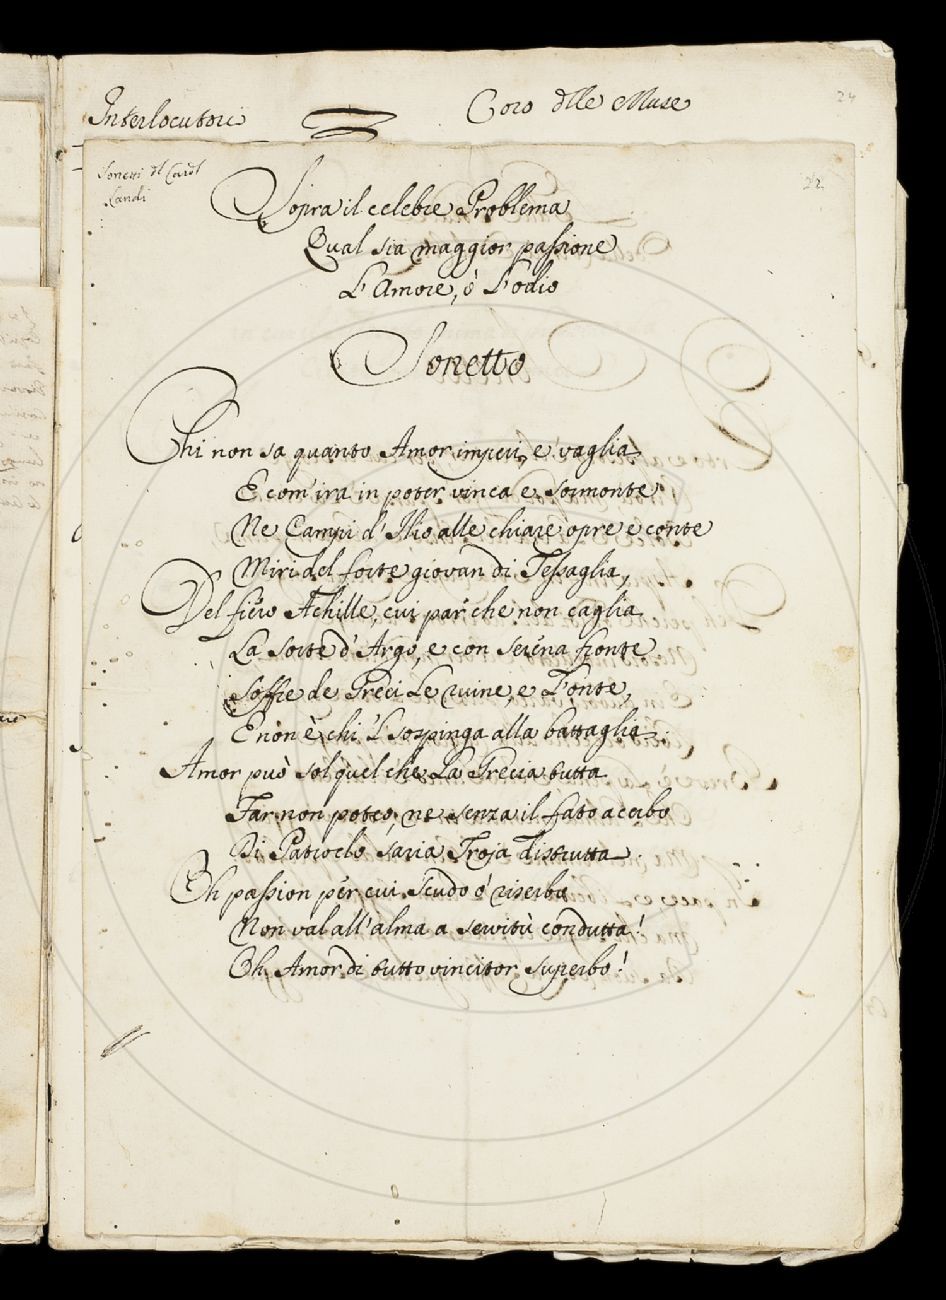 Interlocutori
Coro dlle Muse
24
Sonetti dl Cardl
Landi
22
Sopra il celebre Problema
Qual sia maggior passione
L'Amore, ò L'odio
Sonetto
Chi non sa quanto Amor imperi, e vaglia
E com' ira in poter vinca e sormonte
Ne Campi d'Ilio alle chiare opre e conte
Miri del forte giovan di Tessaglia,
Del fiero Achille, cui par che non caglia
La sorte d'Argo, e con serena fronte
Soffre de Greci Le ruine, e L'onte,
E non è chi L' sospinga alla battaglia.
Amor può sol quel che La Grecia tutta
Far non poteo, ne senza il fato acerbo
Di Patroclo saria Troja distrutta
Oh passion per cui Scudo ò riserbo
Non val all'alma a servitù condutta!
Oh Amor di tutto vincitor superbo!